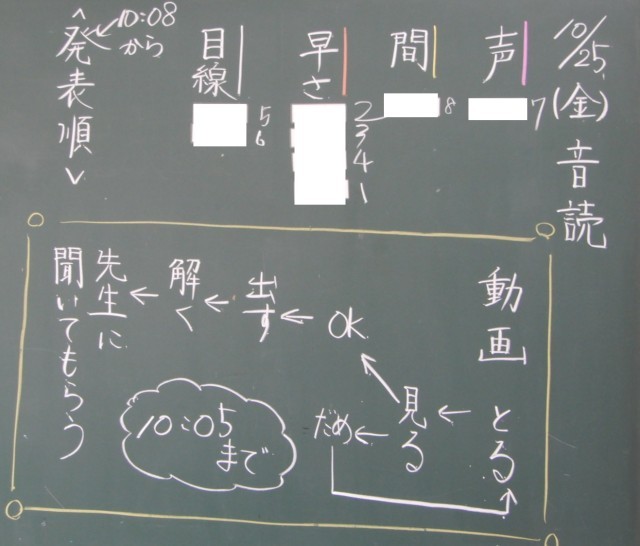 10/25(金)音読
声
7
間
8
早さ
2
3
4
1
目線
5
6
<発表順>
10:08から
動画
とる
見る
OK
だめ
出す
解く
先生に
聞いてもらう
10:05
まで